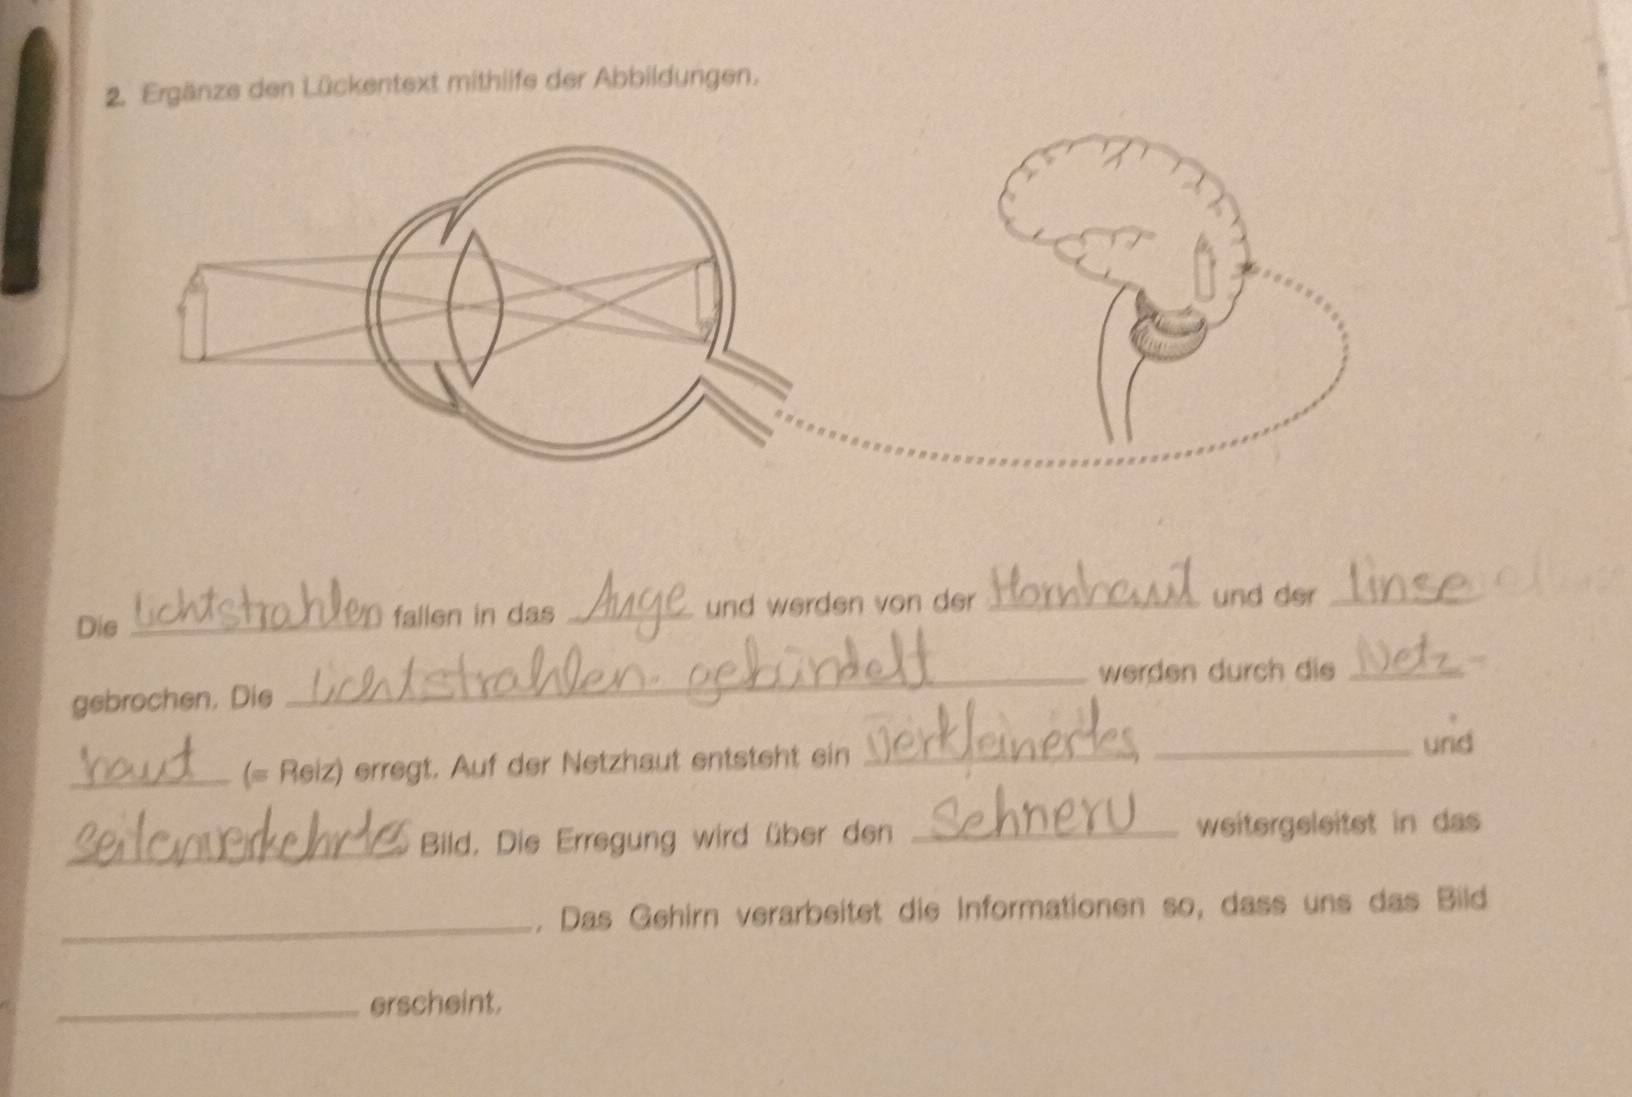 2. Ergänze den Lückentext mithilfe der Abbildungen.
Die Lichtstrahlen fallen in das Auge und werden von der Hornhaut und der linse
gebrochen. Die lichtstrahlen. gebündelt werden durch die Netz-
haut (= Reiz) erregt. Auf der Netzhaut entsteht ein verkleinertes, und
seitenverkehrtes Bild. Die Erregung wird über den Sehnerv weitergeleitet in das
. Das Gehirn verarbeitet die Informationen so, dass uns das Bild
erscheint.